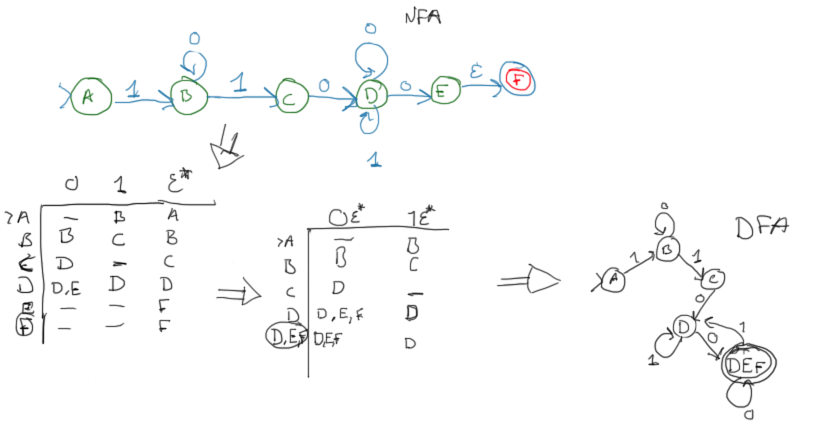 NFA
0 0
A 1 B 1 C 0 D 0 E ε F
1
0 1 ε*
>A — B A
B B C B
C D — C
D D,E D D
E — — F
F — — F
0ε* 1ε*
>A — B
B B C
C D —
D D,E,F D
D,E,F D,E,F D
DFA
0
A 1 B 1 C
0
D 0 1
1 DEF
0